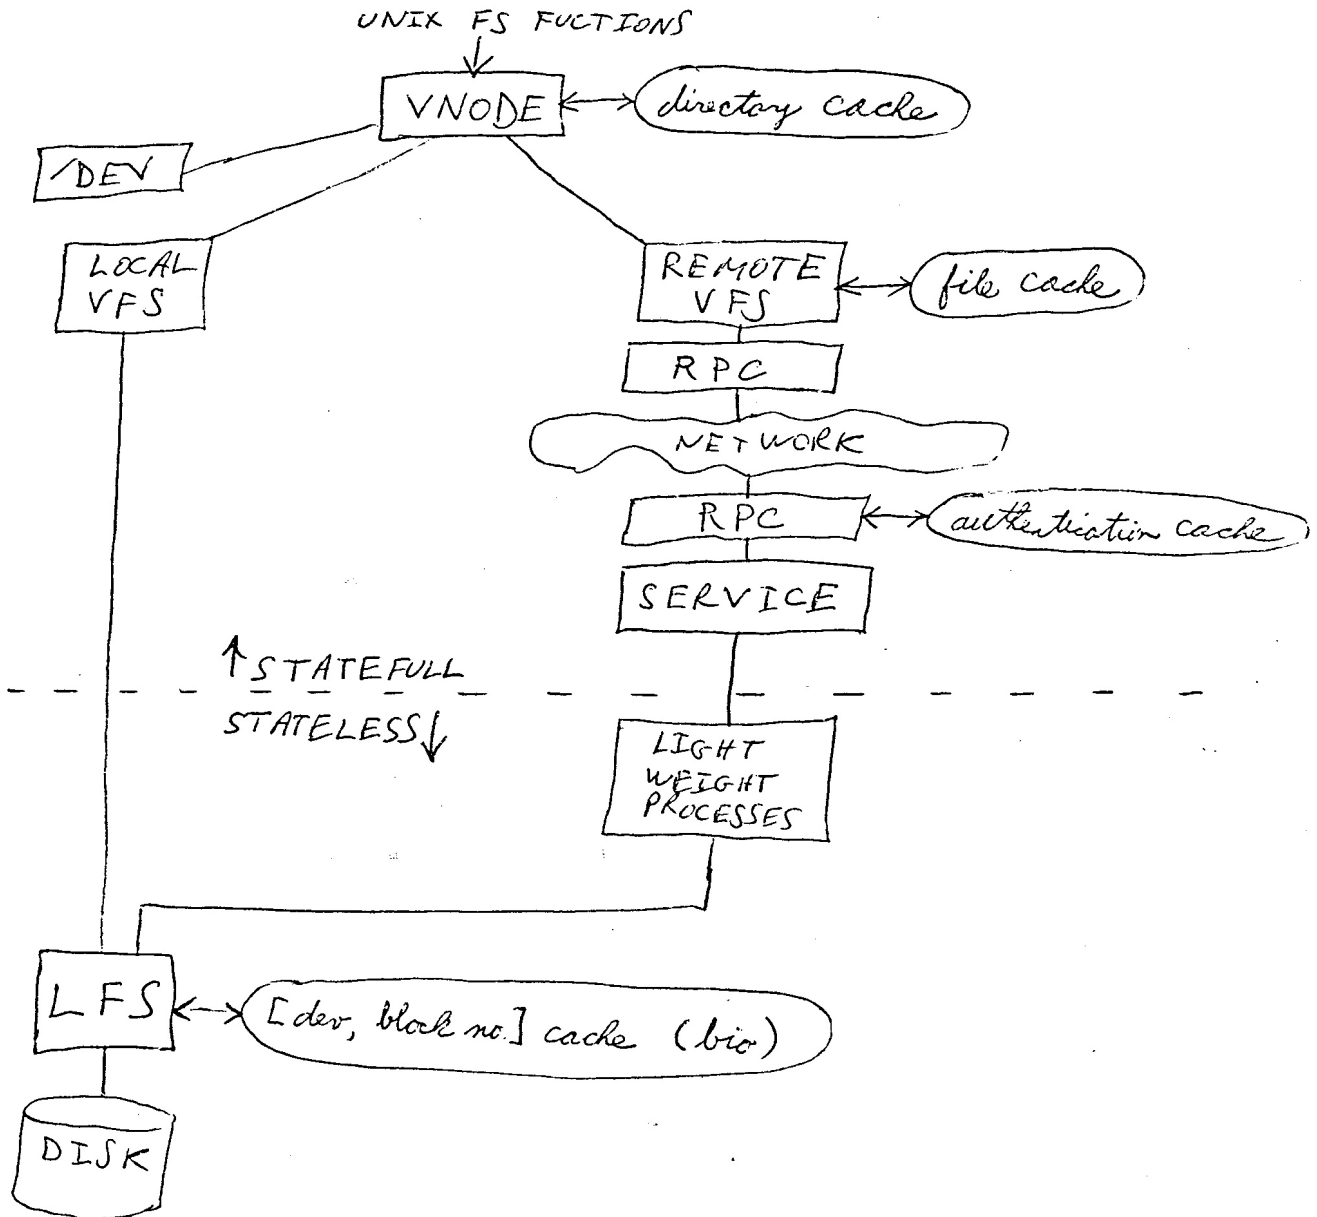 UNIX FS FUCTIONS
VNODE
directory cache
/DEV
LOCAL
VFS
REMOTE
VFS
file cache
RPC
NETWORK
RPC
authentication cache
SERVICE
↑ STATEFULL
STATELESS ↓
LIGHT
WEIGHT
PROCESSES
LFS
[dev, block no.] cache (bio)
DISK